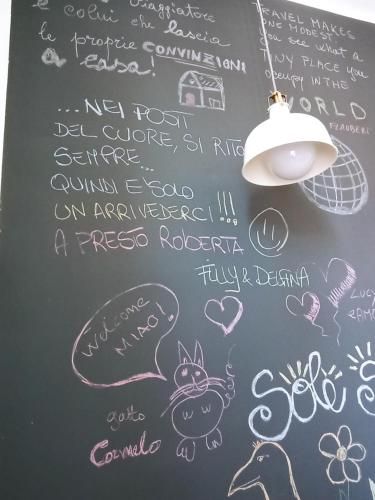 Viaggiatore
è colui che lascia
le proprie CONVINZIONI
a casa!
TRAVEL MAKES
ONE MODEST
you see what a
TINY PLACE you
occupy IN THE
WORLD
FLAUBERT
...NEI POSTI
DEL CUORE, SI RITO
SEMPRE...
QUINDI E' SOLO
UN ARRIVEDERCI!!!
A PRESTO ROBERTA
FILLY & DELFINA
LUCY
Welcome
MIAO!
gatto
Carmelo
Sole
S